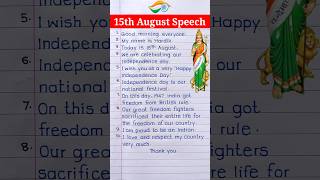 15th August Speech
1. Good morning everyone.
2. My name is Hardik.
3. Today is 15th August.
4. We are celebrating our
Independence day.
5. I wish you all a very 'Happy
Independence Day.'
6. Independence day is our
national festival.
7. On this day, 1947, india got
freedom from British rule.
8. Our great freedom fighters
sacrificed their entire life for
the freedom of our country.
9. I am proud to be an Indian.
10. I love and respect my country
very much.
Thank you
5. I wish you
Independence
6.
national
7. On this day
freedom
8. Our great
ndia got
rule.
ghters